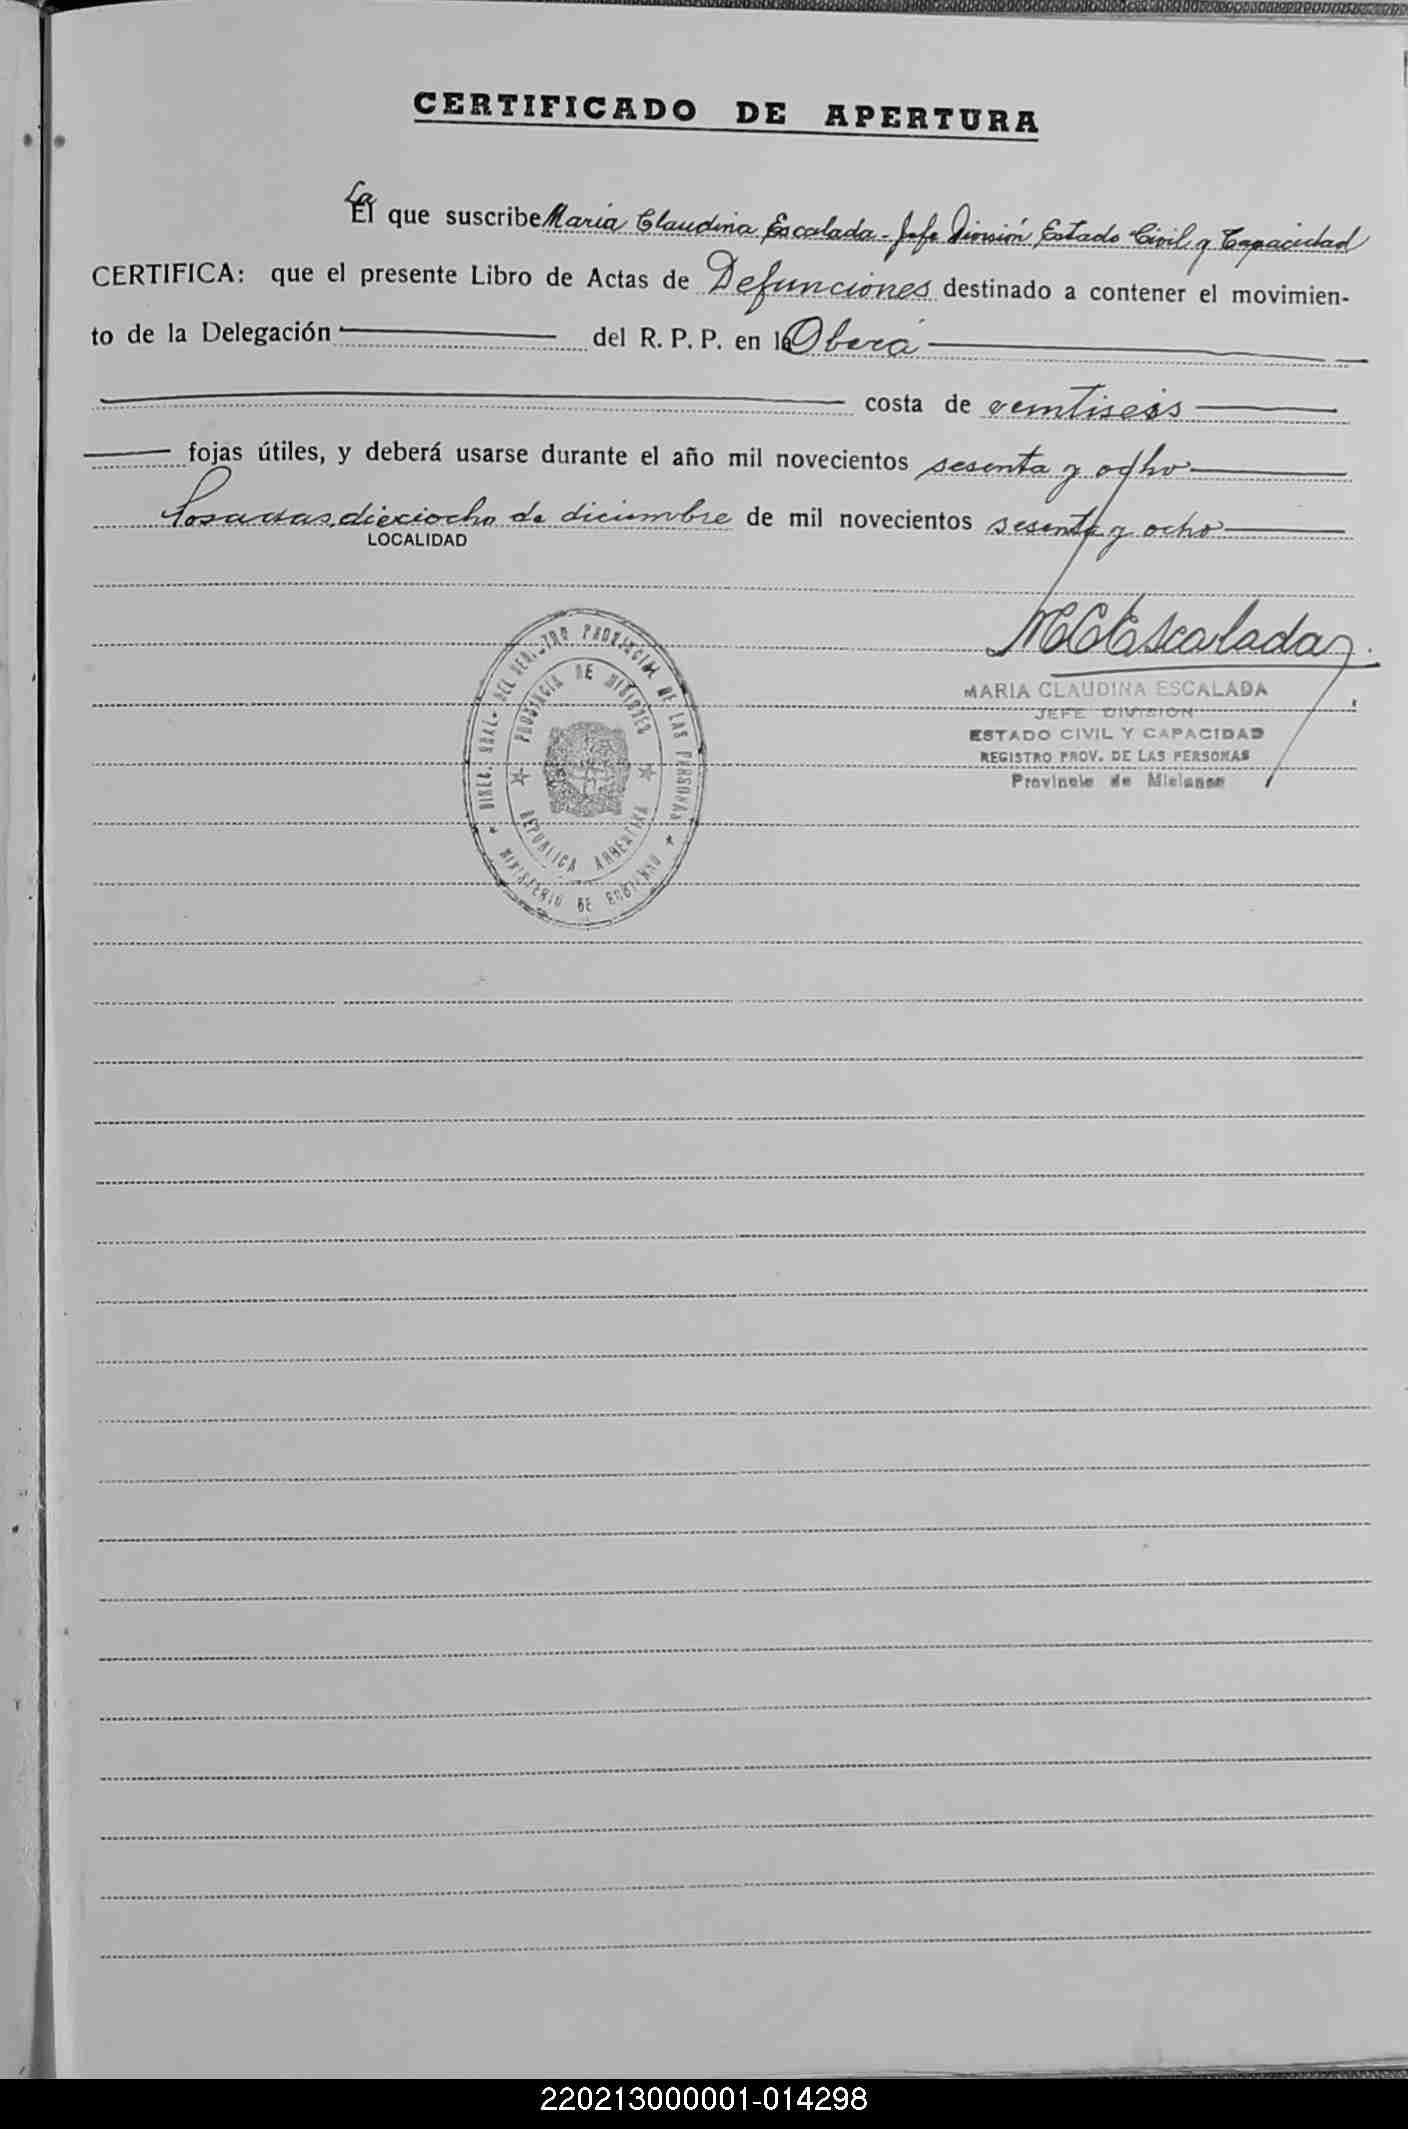 CERTIFICADO DE APERTURA
La
El que suscribe Maria Claudina Escalada - Jefe División Estado Civil y Capacidad
CERTIFICA: que el presente Libro de Actas de Defunciones destinado a contener el movimien-
to de la Delegación del R. P. P. en la Oberá
costa de veintiseis
fojas útiles, y deberá usarse durante el año mil novecientos sesenta y ocho
Posadas, dieciocho de diciembre de mil novecientos sesenta y ocho
LOCALIDAD
MCEscalada
MARIA CLAUDINA ESCALADA
JEFE DIVISION
ESTADO CIVIL Y CAPACIDAD
REGISTRO PROV. DE LAS PERSONAS
Provincia de Misiones
DIREC. GRAL. DEL REGISTRO PROVINCIAL DE LAS PERSONAS
MINISTERIO DE GOBIERNO
PROVINCIA DE MISIONES
REPUBLICA ARGENTINA
220213000001-014298